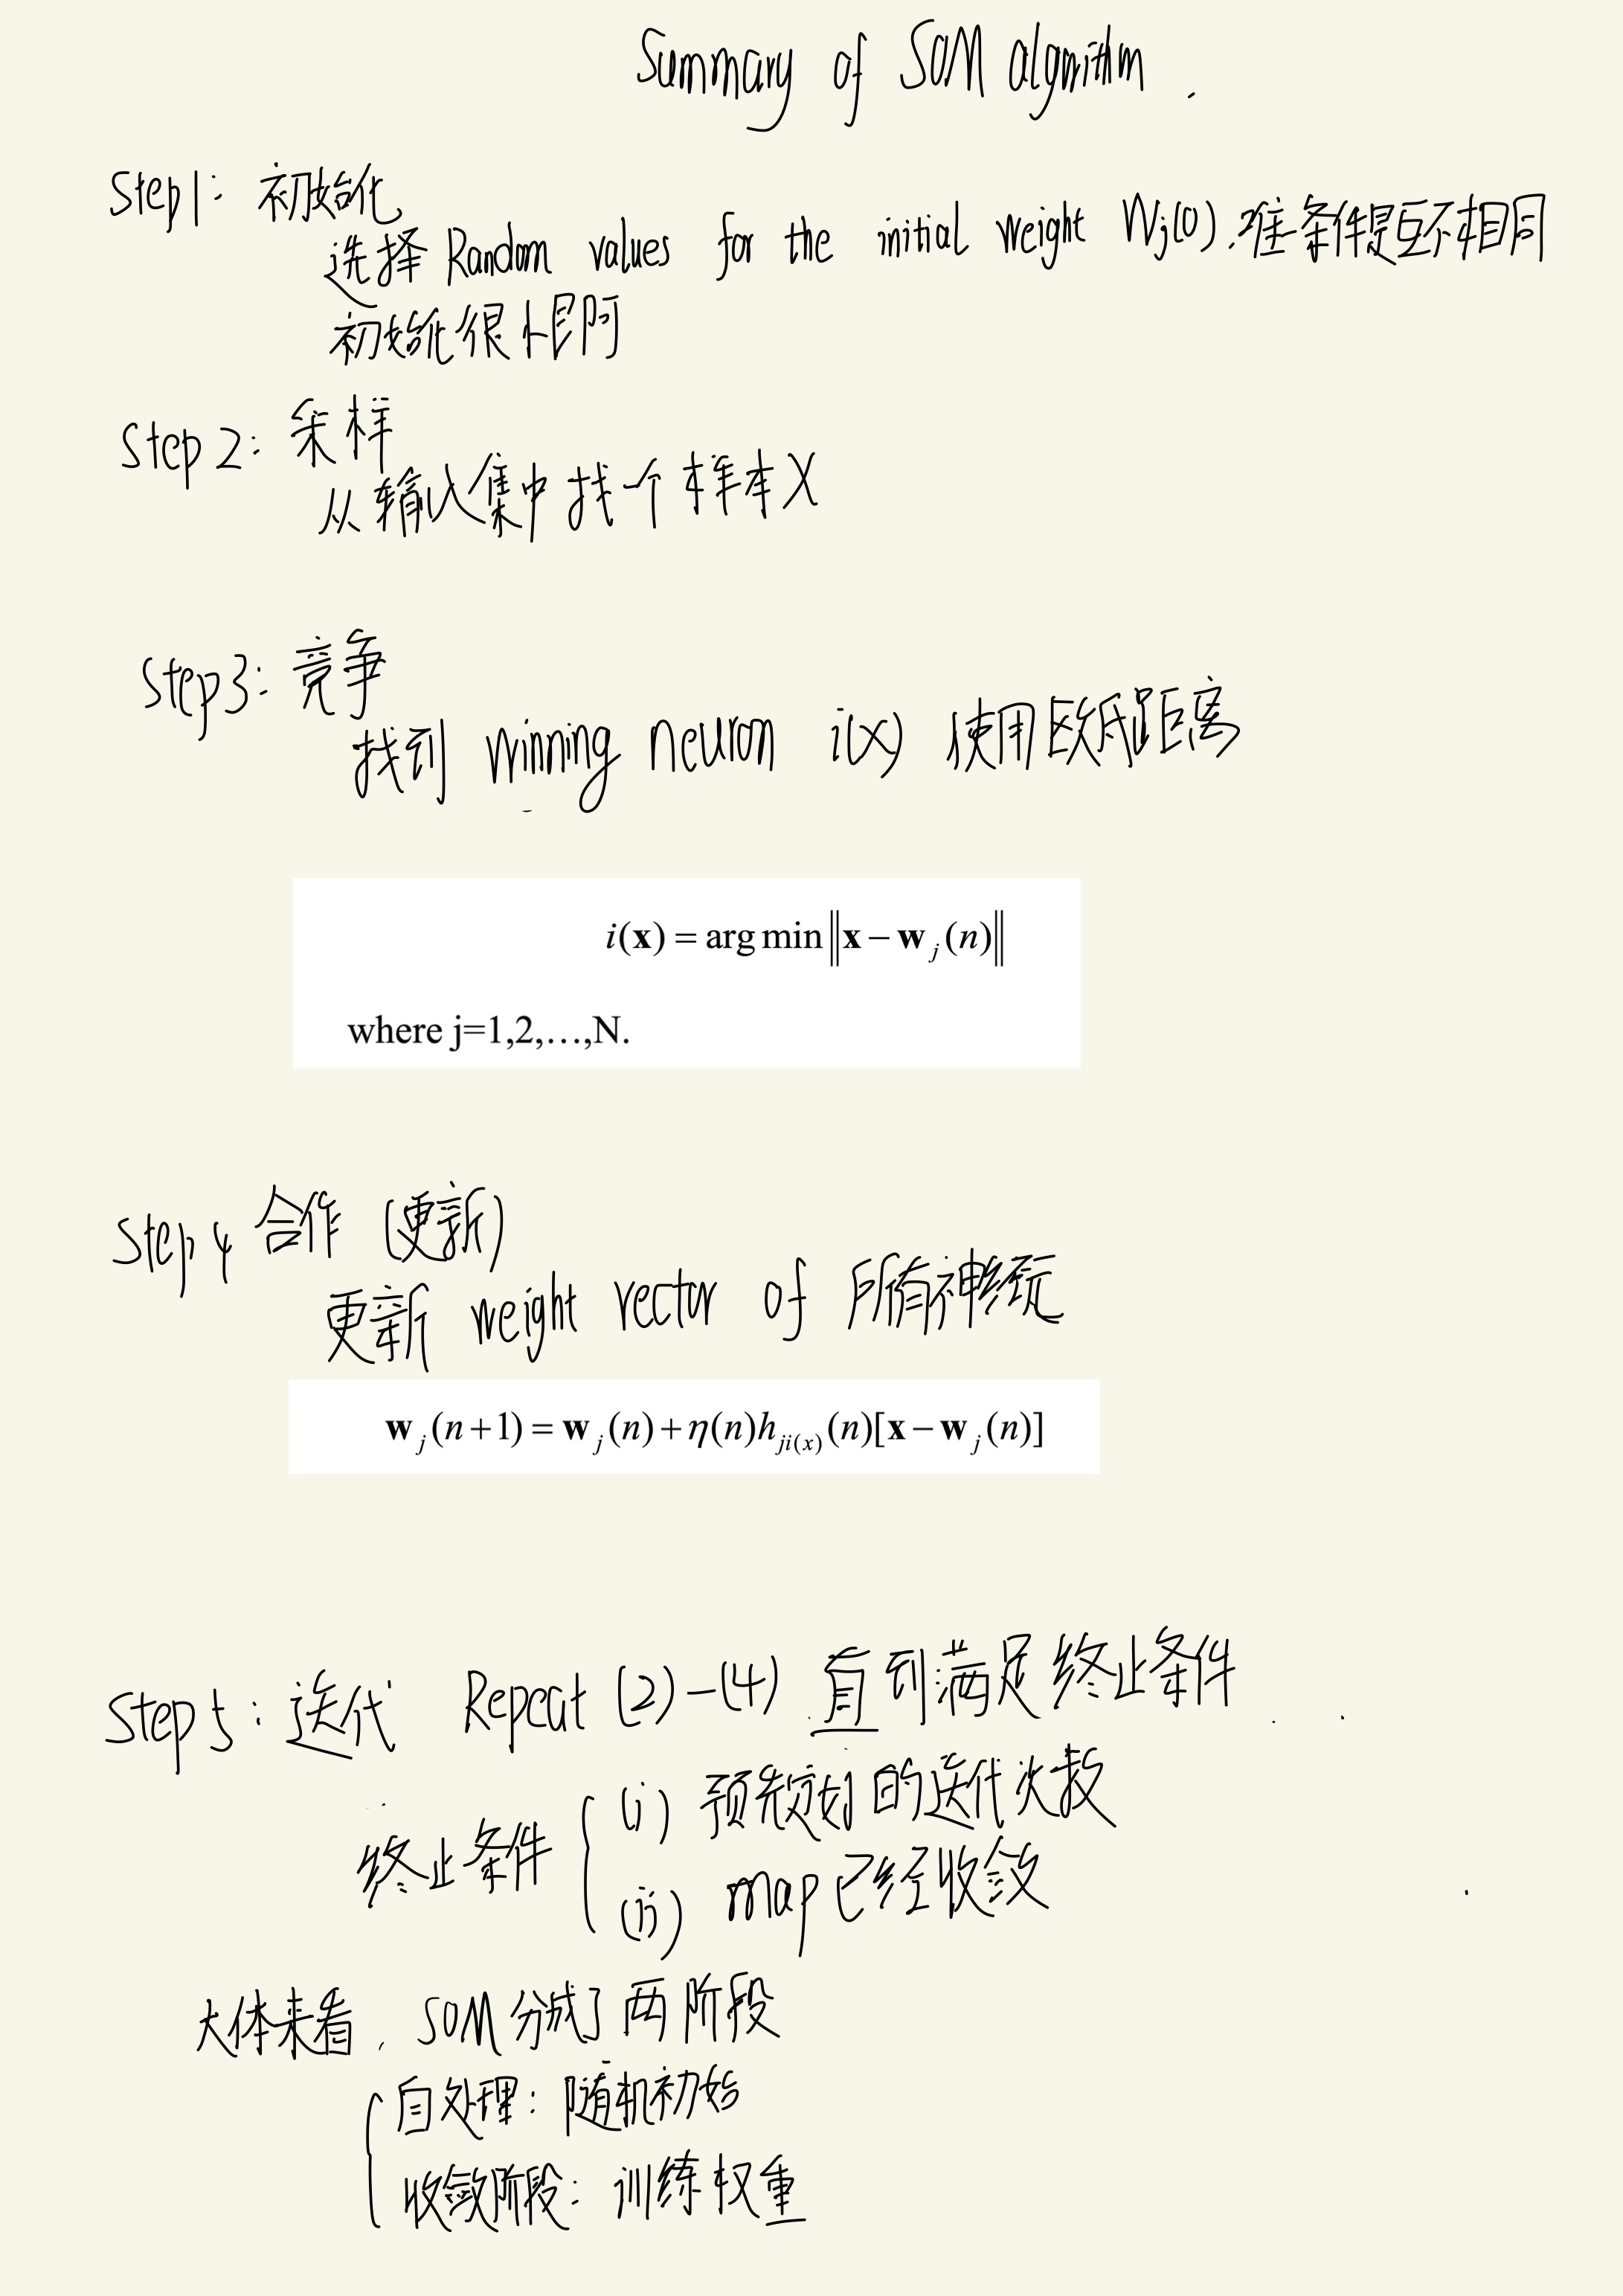 Summary of SOM algorithm.
Step1: 初始化
选择 Random values for the initial weight Wj(0). 唯一条件是互不相同
初始化很
Step 2: 采样
从输入集中找一个样本X
Step3: 竞争
找到 winning neuron i(x) 使用欧氏距离
i(x) = arg min ‖x − w_j(n)‖
where j=1,2,…,N.
Step 4 合作 (更新)
更新 weight vector of 所有神经元
w_j(n+1) = w_j(n) + η(n)h_{ji(x)}(n)[x − w_j(n)]
Step 5: 迭代 Repeat (2)-(4) 直到满足终止条件
终止条件 { (i) 预先定制的迭代次数
(ii) map已经收敛
大体来看, SOM 分成了两阶段
自处理: 随机初始
收敛阶段: 训练权重